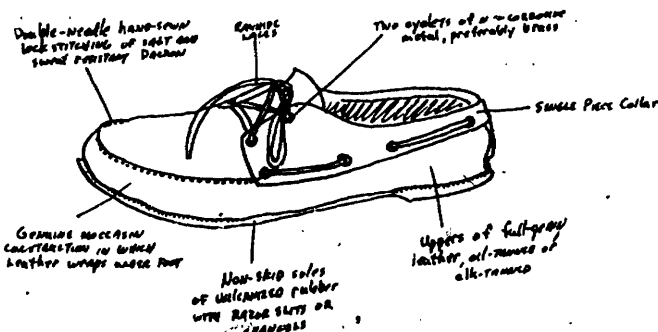 Double-needle hand-sewn
lock stitching of salt and
sweat resistant dacron
Rawhide
laces
Two eyelets of non-corrosive
metal, preferably brass
Single Piece Collar
Genuine moccasin
construction in which
leather wraps under foot
Non-skid soles
of vulcanized rubber
with razor slits or
Uppers of full-grain
leather, oil-tanned or
alk-tanned